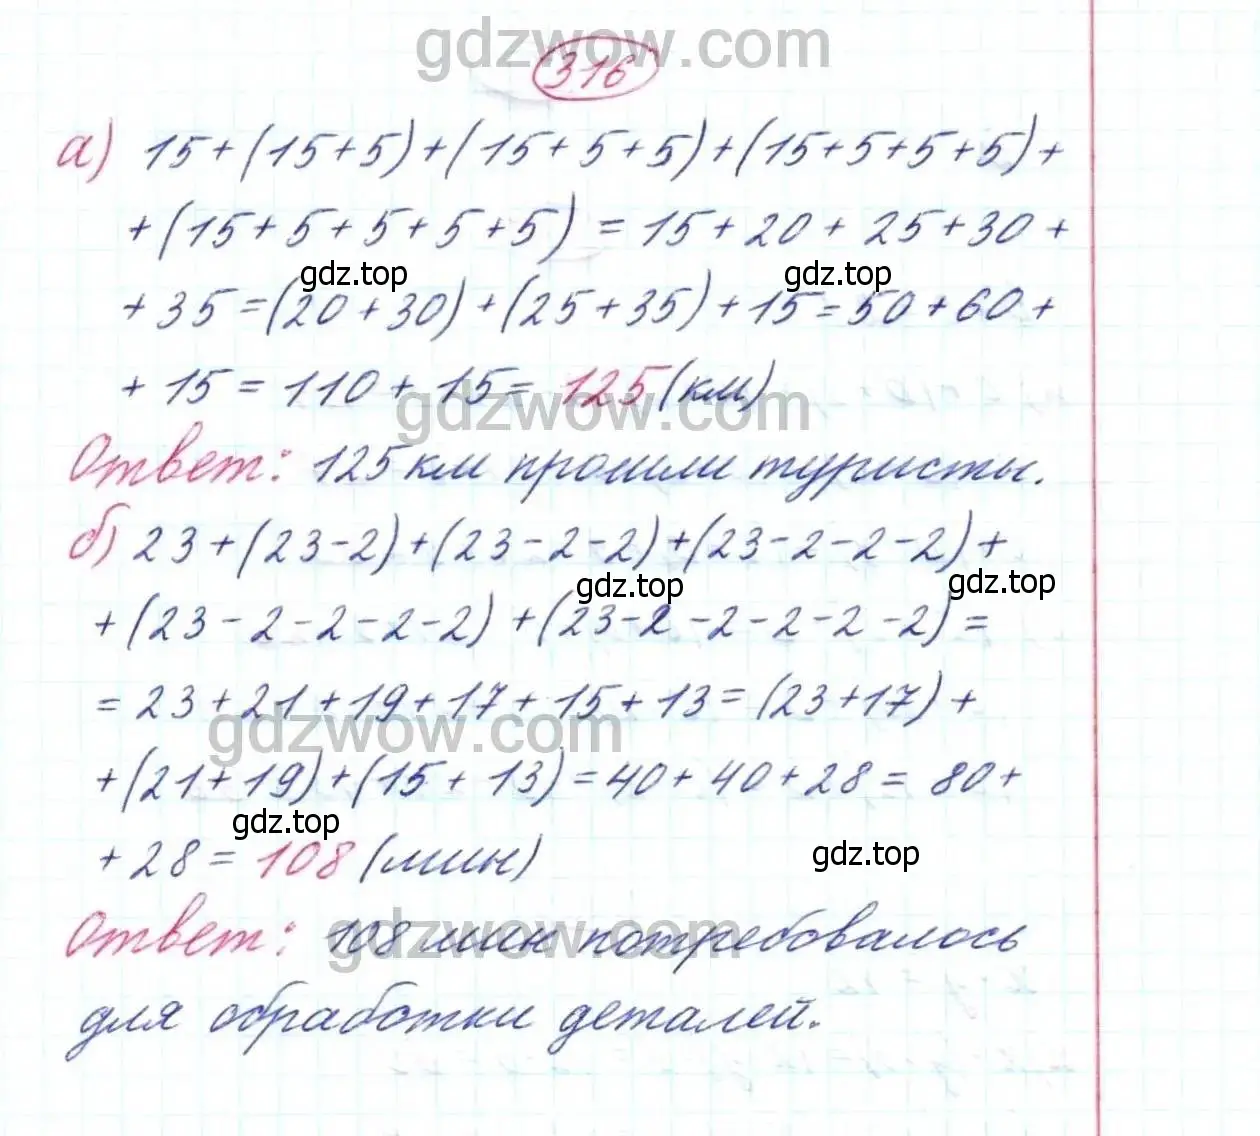 gdzwow.com
316
а) 15+(15+5)+(15+5+5)+(15+5+5+5)+
+(15+5+5+5+5) = 15+20+25+30+
gdz.top gdz.top
+35=(20+30)+(25+35)+15=50+60+
+15=110+15=125(км)
gdzwow.com
Ответ: 125км прошли туристы.
б) 23+(23-2)+(23-2-2)+(23-2-2-2)+
gdz.top gdz.top
+(23-2-2-2-2)+(23-2-2-2-2-2)=
=23+21+19+17+15+13=(23+17)+
gdzwow.com
+(21+19)+(15+13)=40+40+28=80+
gdz.top
+28=108(мин)
gdz.top
gdzwow.com
Ответ: 108 мин потребовалось
для обработки деталей.